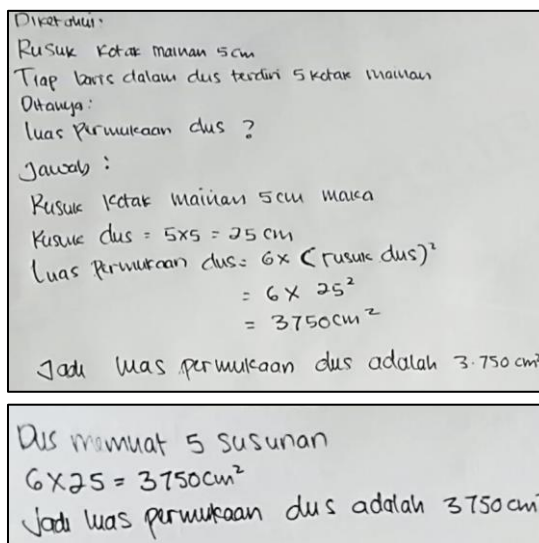 Diketahui:
Rusuk Kotak mainan 5cm
Tiap baris dalam dus terdiri 5 kotak mainan
Ditanya:
luas permukaan dus ?
Jawab :
Rusuk kotak mainan 5cm maka
Rusuk dus = 5x5 = 25 cm
Luas Permukaan dus = 6x (rusuk dus)²
= 6 x 25²
= 3750cm²
Jadi luas permukaan dus adalah 3.750 cm²
Dus memuat 5 susunan
6x25 = 3750cm²
Jadi luas permukaan dus adalah 3750cm²